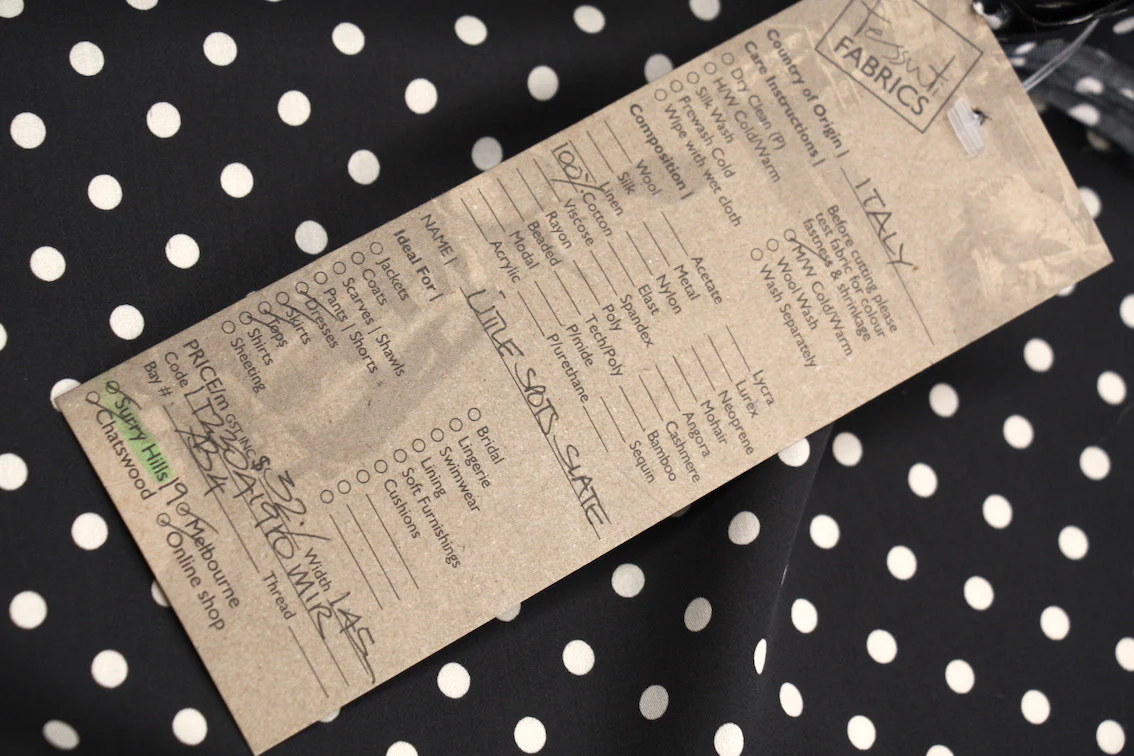 Tessuti
FABRICS
Country of Origin | ITALY
Care Instructions |
Before cutting please
test fabric for colour
fastness & shrinkage
Dry Clean (P)
H/W Cold/Warm
Silk Wash
Prewash Cold
Wipe with wet cloth
M/W Cold/Warm
Wool Wash
Wash Separately
Composition |
Wool
Silk
Linen
100% Cotton
Viscose
Rayon
Beaded
Modal
Acrylic
Acetate
Metal
Nylon
Elast
Spandex
Poly
Tech/Poly
P/mide
P/urethane
Lycra
Lurex
Neoprene
Mohair
Angora
Cashmere
Bamboo
Sequin
NAME | LITTLE SPOTS SLATE
Ideal For |
Jackets
Coats
Scarves | Shawls
Pants | Shorts
Dresses
Skirts
Tops
Shirts
Sheeting
Bridal
Lingerie
Swimwear
Lining
Soft Furnishings
Cushions
PRICE/m GST INC $ 32/ Width 145
Code |
Bay #
Thread
Surry Hills
Chatswood
Melbourne
Online shop